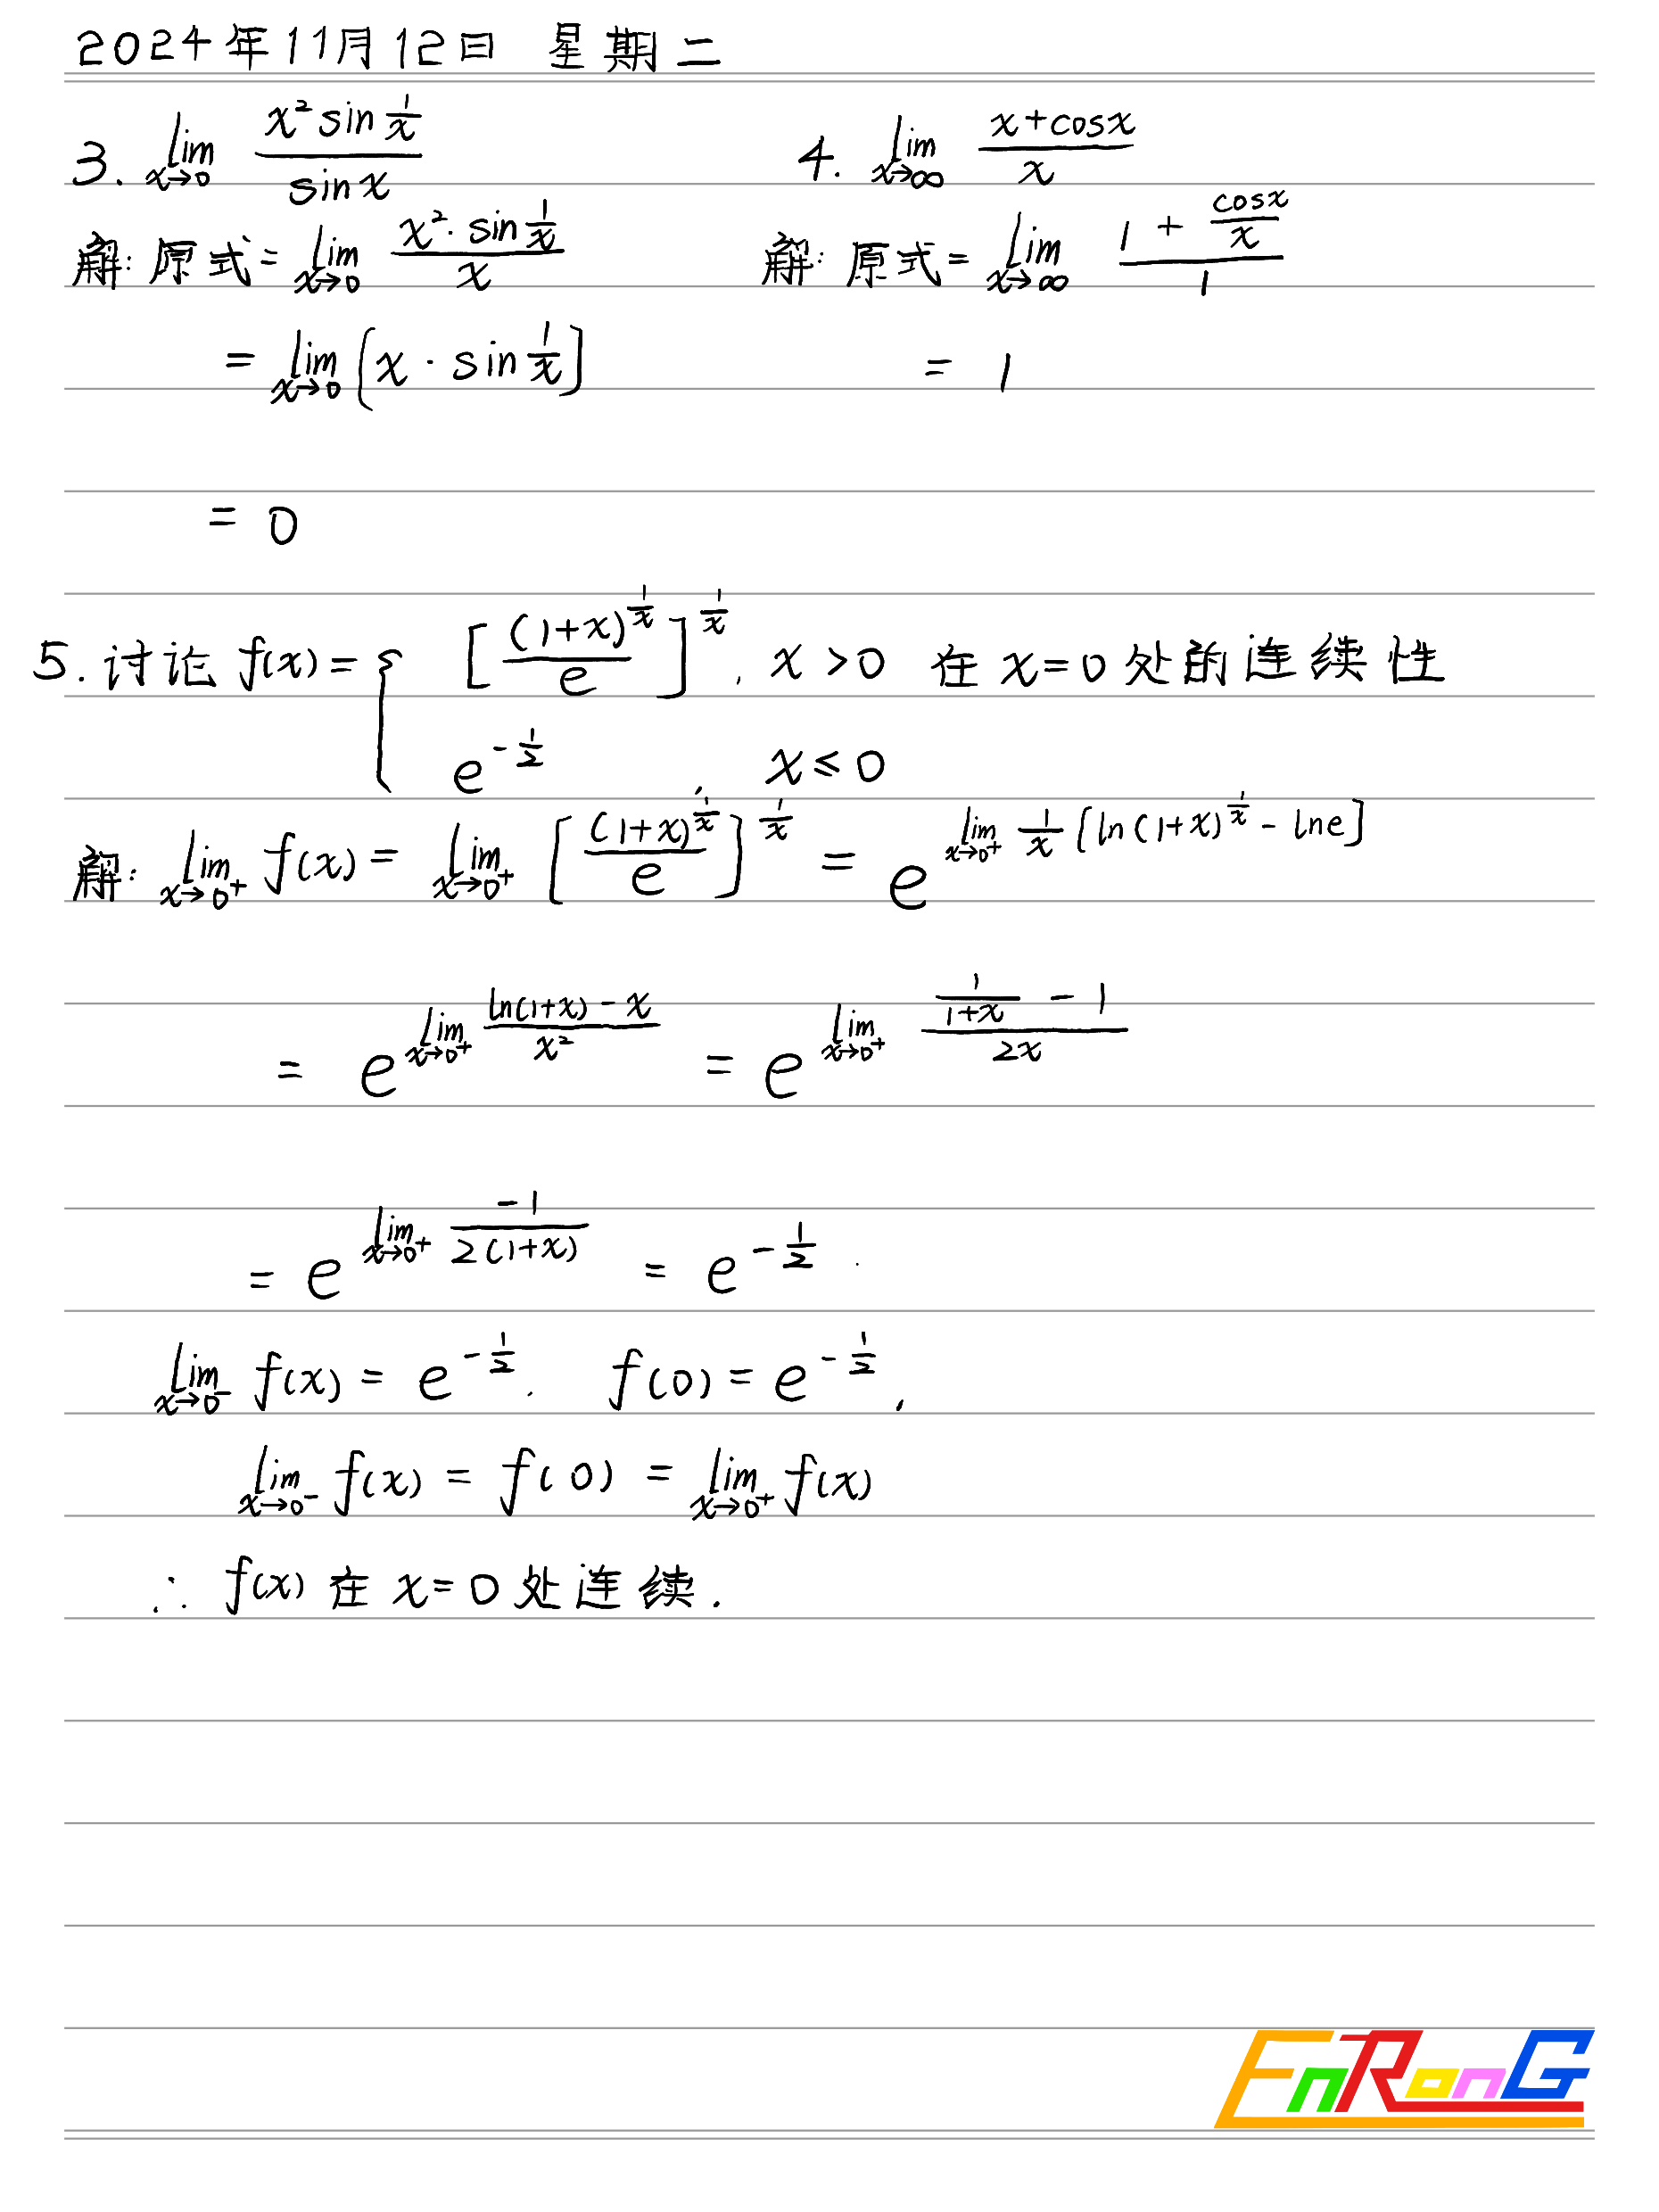 2024年11月12日 星期二
3. lim_{x→0} \frac{x² sin\frac{1}{x}}{sin x}
4. lim_{x→∞} \frac{x+cosx}{x}
解: 原式= lim_{x→0} \frac{x²·sin\frac{1}{x}}{x}
解: 原式= lim_{x→∞} \frac{1+\frac{cosx}{x}}{1}
= lim_{x→0} [x·sin\frac{1}{x}]
= 1
= 0
5. 讨论 f(x) = { [\frac{(1+x)^{\frac{1}{x}}}{e}]^{\frac{1}{x}}, x>0 在 x=0 处的连续性
e^{-\frac{1}{2}} x≤0
解: lim_{x→0⁺} f(x) = lim_{x→0⁺} [\frac{(1+x)^{\frac{1}{x}}}{e}]^{\frac{1}{x}} = e^{lim_{x→0⁺} \frac{1}{x}[ln(1+x)^{\frac{1}{x}} - lne]}
= e^{lim_{x→0⁺} \frac{ln(1+x)-x}{x²}} = e^{lim_{x→0⁺} \frac{\frac{1}{1+x}-1}{2x}}
= e^{lim_{x→0⁺} \frac{-1}{2(1+x)}} = e^{-\frac{1}{2}}.
lim_{x→0⁻} f(x) = e^{-\frac{1}{2}}. f(0) = e^{-\frac{1}{2}},
lim_{x→0⁻} f(x) = f(0) = lim_{x→0⁺} f(x)
∴ f(x) 在 x=0 处连续.
EnRonG